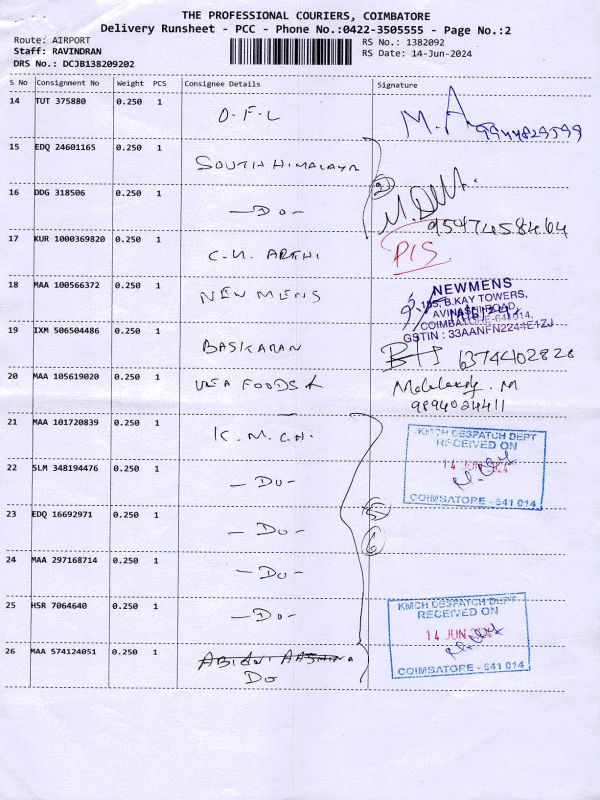 THE PROFESSIONAL COURIERS, COIMBATORE
Delivery Runsheet - PCC - Phone No.:0422-3505555 - Page No.:2
Route: AIRPORT
Staff: RAVINDRAN
DRS No.: DCJB138209202
RS No.: 1382092
RS Date: 14-Jun-2024
S No Consignment No Weight PCS Consignee Details Signature
14 TUT 375880 0.250 1 O.F.L M.A 9944829599
15 EDQ 24601165 0.250 1 SOUTH HIMALAYA
2
16 DDG 318506 0.250 1 -Do-
17 KUR 1000369820 0.250 1 C.N. ARTHI P/S
18 MAA 100566372 0.250 1 NEW MENS
NEWMENS
155, B.KAY TOWERS,
AVINASHI ROAD,
COIMBATORE-641 014.
GSTIN : 33AANFN2244E1ZJ
19 IXM 506504486 0.250 1 BASKARAN 6374402828
20 MAA 105619020 0.250 1 FOODS
9894024411
21 MAA 101720839 0.250 1 K.M.C.H.
KMCH DESPATCH DEPT
RECEIVED ON
14 JUN 2024
COIMSATORE - 641 014
22 SLM 348194476 0.250 1 -Do-
23 EDQ 16692971 0.250 1 -Do-
6
24 MAA 297168714 0.250 1 -Do-
25 HSR 7064640 0.250 1 -Do-
KMCH DESPATCH DEPT
RECEIVED ON
14 JUN
COIMSATORE - 641 014
26 MAA 574124051 0.250 1
Do